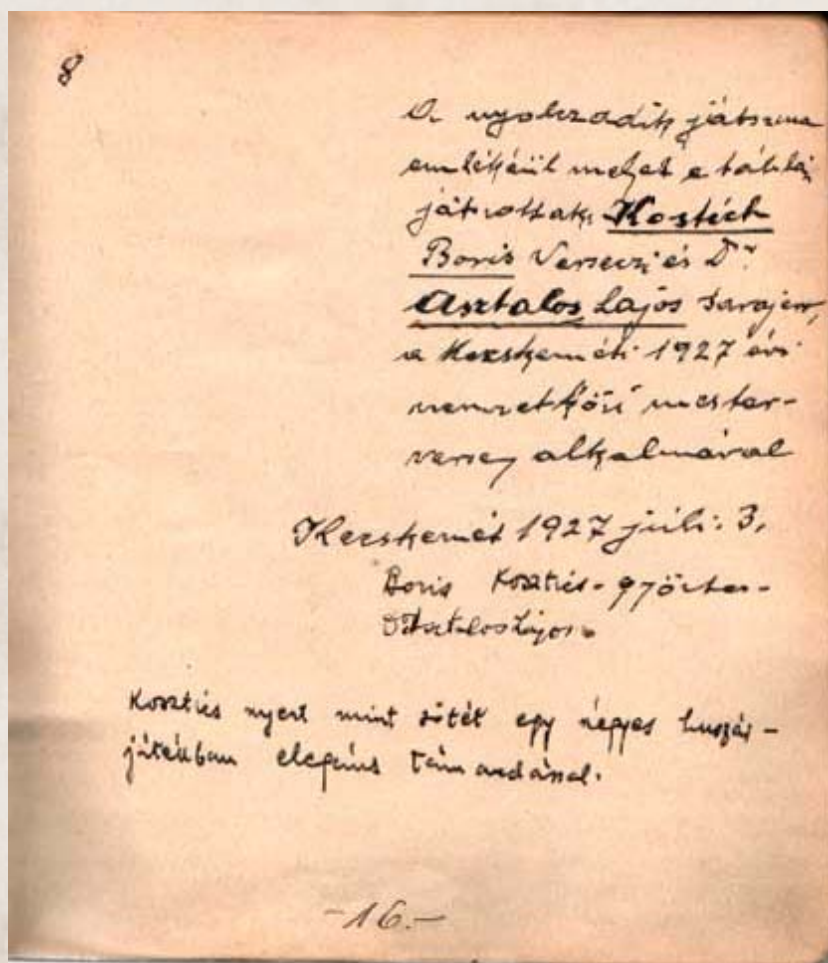 8
A nyolczadik játszma
emlékéül melyet e táblán
játszottak Kostich
Boris Verseczi és Dr
Asztalos Lajos Sarajevo,
a Kecskeméti 1927 évi
nemzetközi mester-
verseny alkalmával
Kecskemét 1927 júli. 3,
Boris Kosztics - győztes -
Asztalos Lajos
Kosztics nyert mint sötét egy négyes huszár-
játékban elegáns támadással.
-16.-